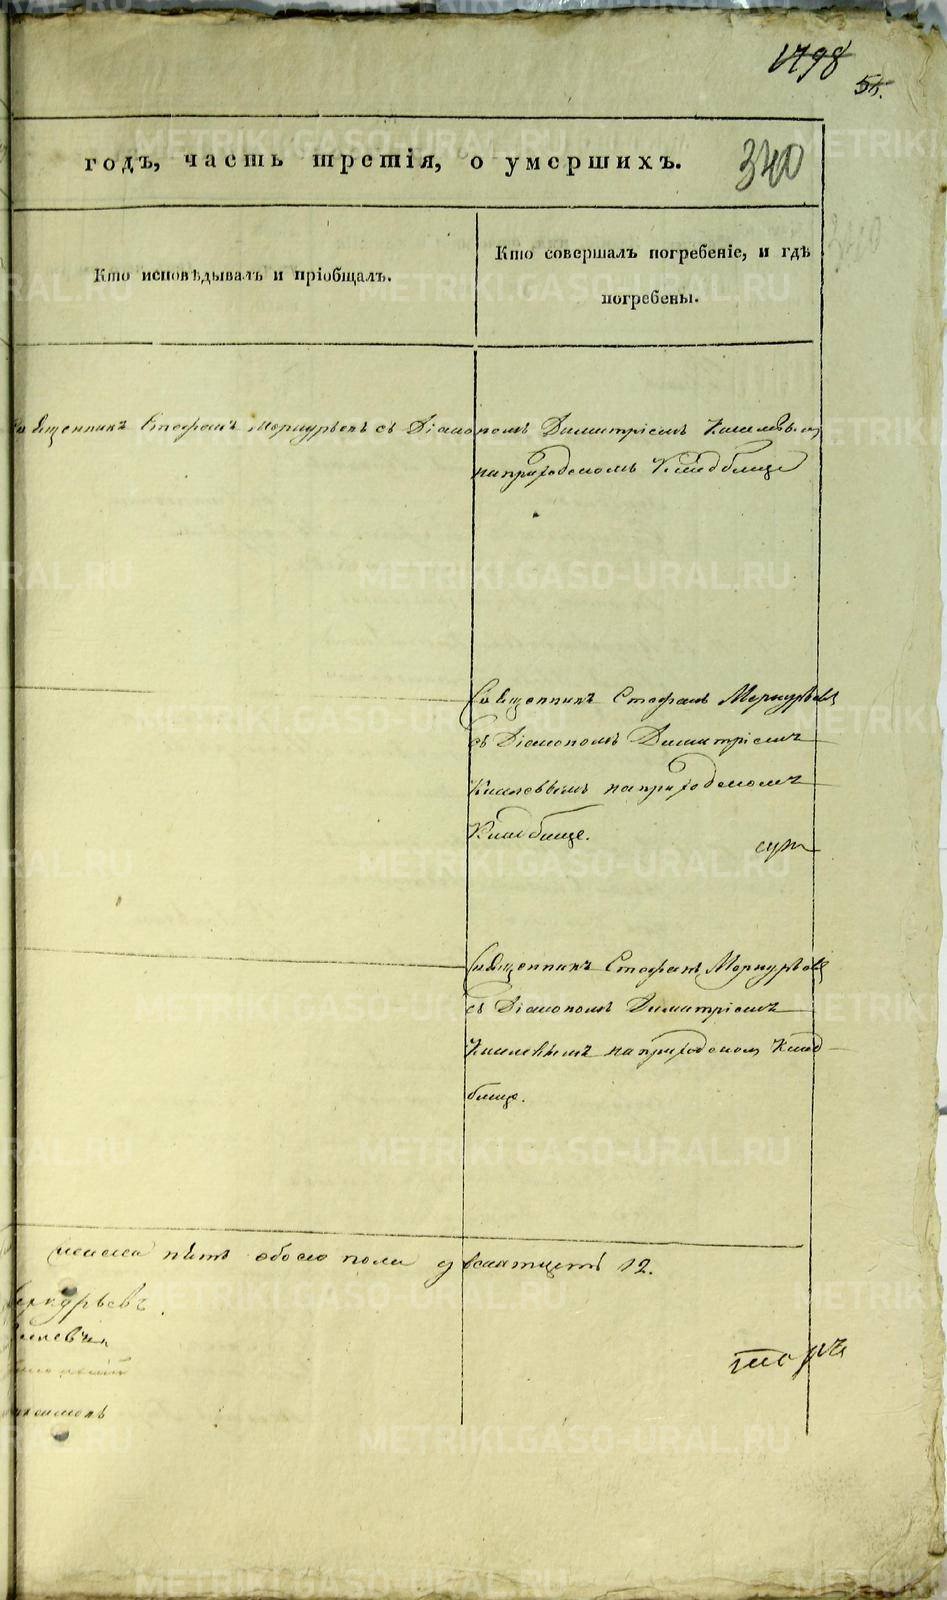 1798
58.
340
годъ, часть третія, о умершихъ.
Кто исповѣдывалъ и пріобщалъ.
Кто совершалъ погребеніе, и гдѣ
погребены.
Священникъ Стефанъ Меркурьевъ съ Діакономъ Димитріемъ
на приходскомъ Кладбище
Священникъ Стефанъ Меркурьевъ
съ Діакономъ Димитріемъ
Киселевымъ на приходскомъ
Кладбище.
Священникъ Стефанъ Меркурьевъ
съ Діакономъ Димитріемъ
Киселевымъ на приходскомъ Клад
бище.
пѣтъ обоего пола 12.
Меркурьевъ.
METRIKI.GASO-URAL.RU